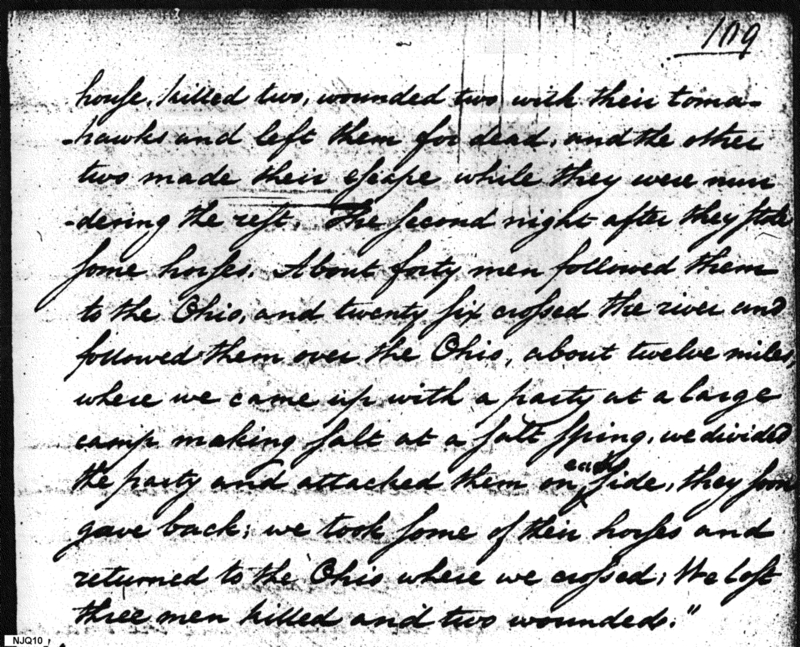 109
house, killed two, wounded two with their toma-
-hawks and left them for dead, and the other
two made their escape while they were mur
-dering the rest. The second night after they stole
some horses. About forty men followed them
to the Ohio, and twenty six crossed the river and
followed them over the Ohio, about twelve miles,
where we came up with a party at a large
camp making salt at a salt spring, we divided
each
the party and attacked them on side, they soon
gave back; we took some of their horses and
returned to the Ohio where we crossed; We lost
three men killed and two wounded."
NJQ10